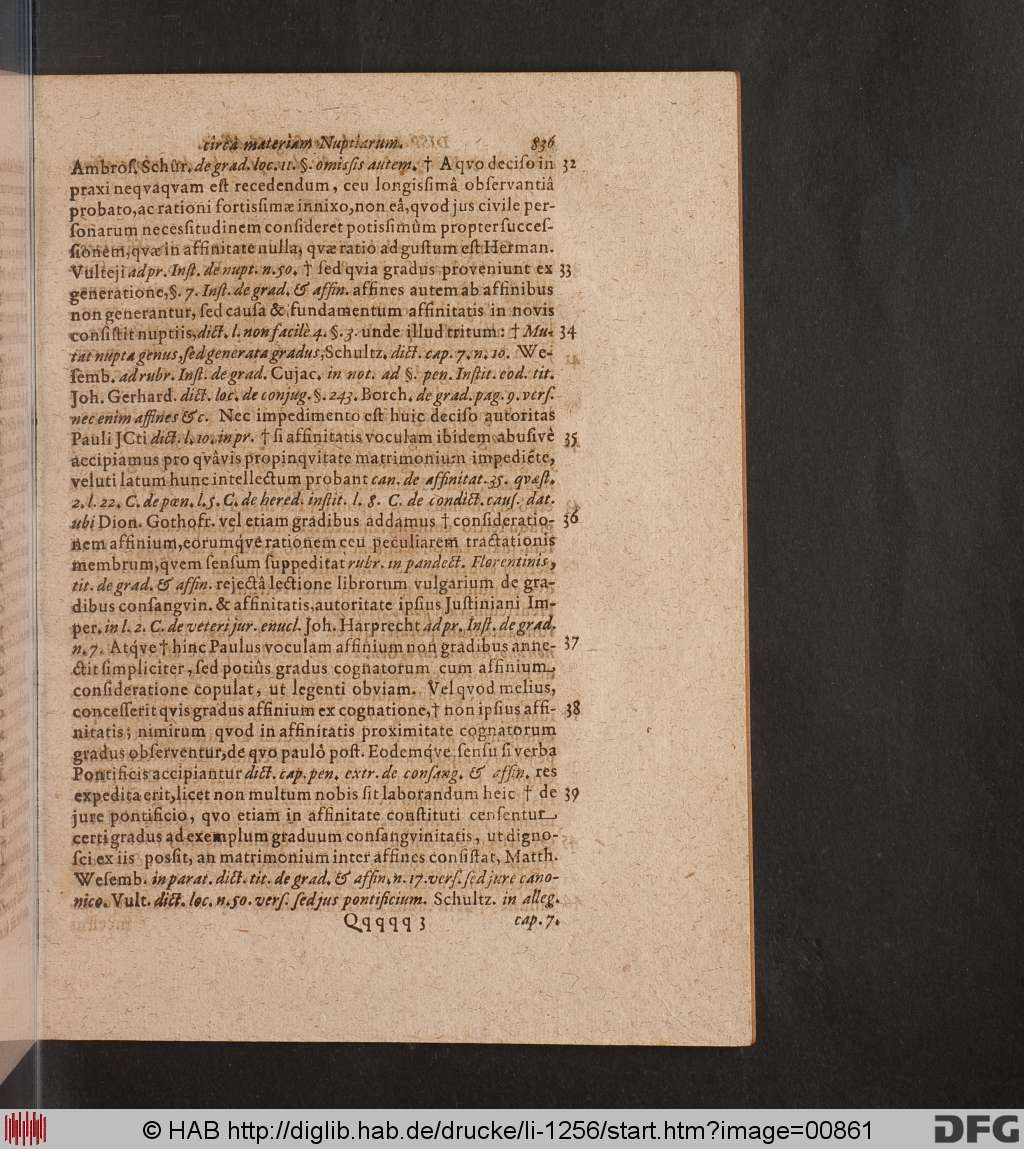 circâ materiam Nuptiarum. 836
Ambroſ. Schür. de grad. loc. 11. §. omiſsis autem. † A qvo deciſo in 32
praxi neqvaqvam eſt recedendum, ceu longiſſimâ obſervantiâ
probato, ac rationi fortiſſimæ innixo, non eâ, qvod jus civile per-
ſonarum neceſſitudinem conſideret potiſſimùm propter ſucceſ-
ſionem, qvæ in affinitate nulla, qvæ ratio ad guſtum eſt Herman.
Vulteji ad pr. Inſt. de nupt. n. 50. † ſed qvia gradus proveniunt ex 33
generatione, §. 7. Inſt. de grad. & affin. affines autem ab affinibus
non generantur, ſed cauſa & fundamentum affinitatis in novis
conſiſtit nuptiis, dict. l. non facilè 4. §. 3. unde illud tritum: † Mu- 34
tat nupta genus, ſed generata gradus, Schultz. dict. cap. 7. n. 10. We-
ſemb. ad rubr. Inſt. de grad. Cujac. in not. ad §. pen. Inſtit. eod. tit.
Joh. Gerhard. dict. loc. de conjug. §. 243. Borch. de grad. pag. 9. verſ.
nec enim affines &c. Nec impedimento eſt huic deciſo autoritas
Pauli JCti dict. l. 10. in pr. † ſi affinitatis voculam ibidem abuſivè 35
accipiamus pro qvâvis propinqvitate matrimonium impediéte,
veluti latum hunc intellectum probant can. de affinitat. 35. qvæſt.
2. l. 22. C. de pœn. l. 5. C. de hered. inſtit. l. 8. C. de condict. cauſ. dat.
ubi Dion. Gothofr. vel etiam gradibus addamus † conſideratio- 36
nem affinium, eorumqve rationem ceu peculiarem tractationis
membrum, qvem ſenſum ſuppeditat rubr. in pandect. Florentinis,
tit. de grad. & affin. rejectâ lectione librorum vulgarium de gra-
dibus conſangvin. & affinitatis, autoritate ipſius Juſtiniani Im-
per. in l. 2. C. de veteri jur. enucl. Joh. Harprecht ad pr. Inſt. de grad.
n. 7. Atqve † hinc Paulus voculam affinium non gradibus anne- 37
ctit ſimpliciter, ſed potiùs gradus cognatorum cum affinium
conſideratione copulat, ut legenti obviam. Vel qvod melius,
conceſſerit qvis gradus affinium ex cognatione, † non ipſius affi- 38
nitatis; nimirum qvod in affinitatis proximitate cognatorum
gradus obſerventur, de qvo paulò poſt. Eodemqve ſenſu ſi verba
Pontificis accipiantur dict. cap. pen. extr. de conſang. & affin. res
expedita erit, licet non multum nobis ſit laborandum heic † de 39
jure pontificio, qvo etiam in affinitate conſtituti cenſentur
certi gradus ad exemplum graduum conſangvinitatis, ut digno-
ſci ex iis poſſit, an matrimonium inter affines conſiſtat, Matth.
Weſemb. in parat. dict. tit. de grad. & affin. n. 17. verſ. ſed jure cano-
nico. Vult. dict. loc. n. 50. verſ. ſed jus pontificium. Schultz. in alleg.
Qqqqq 3 cap. 7.
© HAB http://diglib.hab.de/drucke/li-1256/start.htm?image=00861
DFG